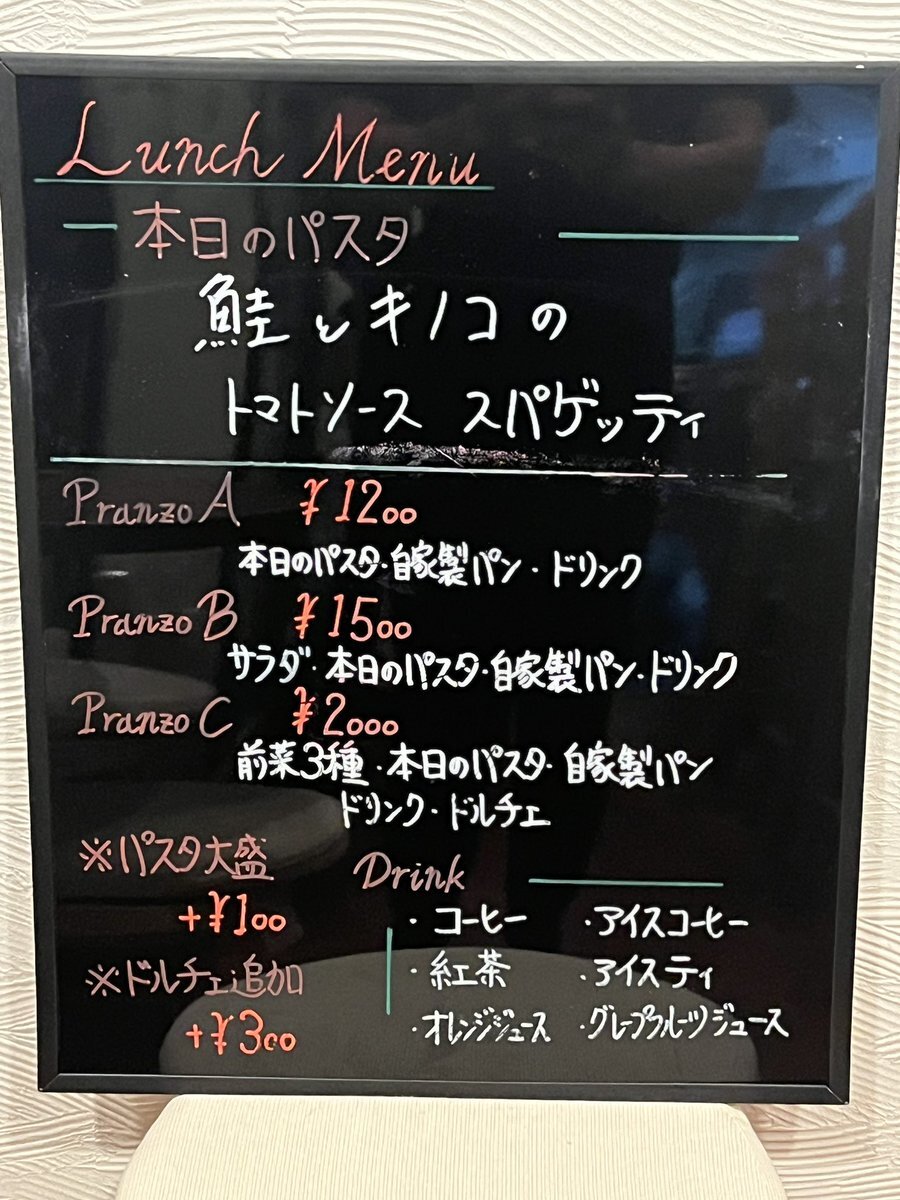 Lunch Menu
本日のパスタ
鮭とキノコの
トマトソース スパゲッティ
Pranzo A ¥1200
本日のパスタ・自家製パン・ドリンク
Pranzo B ¥1500
サラダ・本日のパスタ・自家製パン・ドリンク
Pranzo C ¥2000
前菜3種・本日のパスタ・自家製パン
ドリンク・ドルチェ
※パスタ大盛
+¥100
※ドルチェ追加
+¥300
Drink
・コーヒー ・アイスコーヒー
・紅茶 ・アイスティ
・オレンジジュース ・グレープフルーツジュース